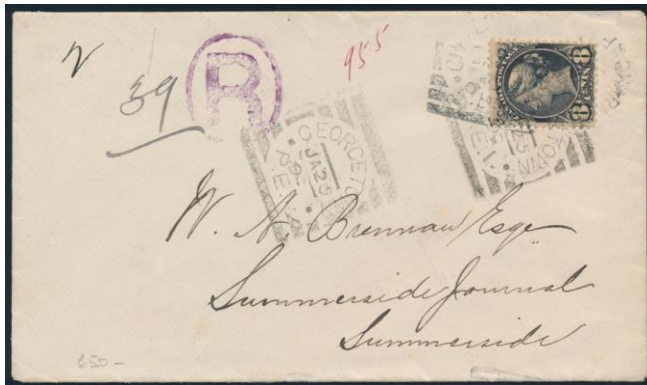 39
R
955
8 CENTS 8
GEORGETOWN
JA 25
P.E.I.
W. A. Brennan Esqe
Summerside Journal
Summerside
650-